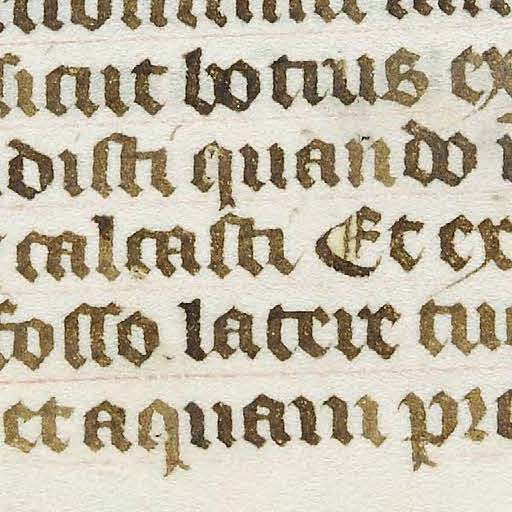 sicut botrus ex
disti quando
calcasti Et ex
fosso latere tu
et aquam pro